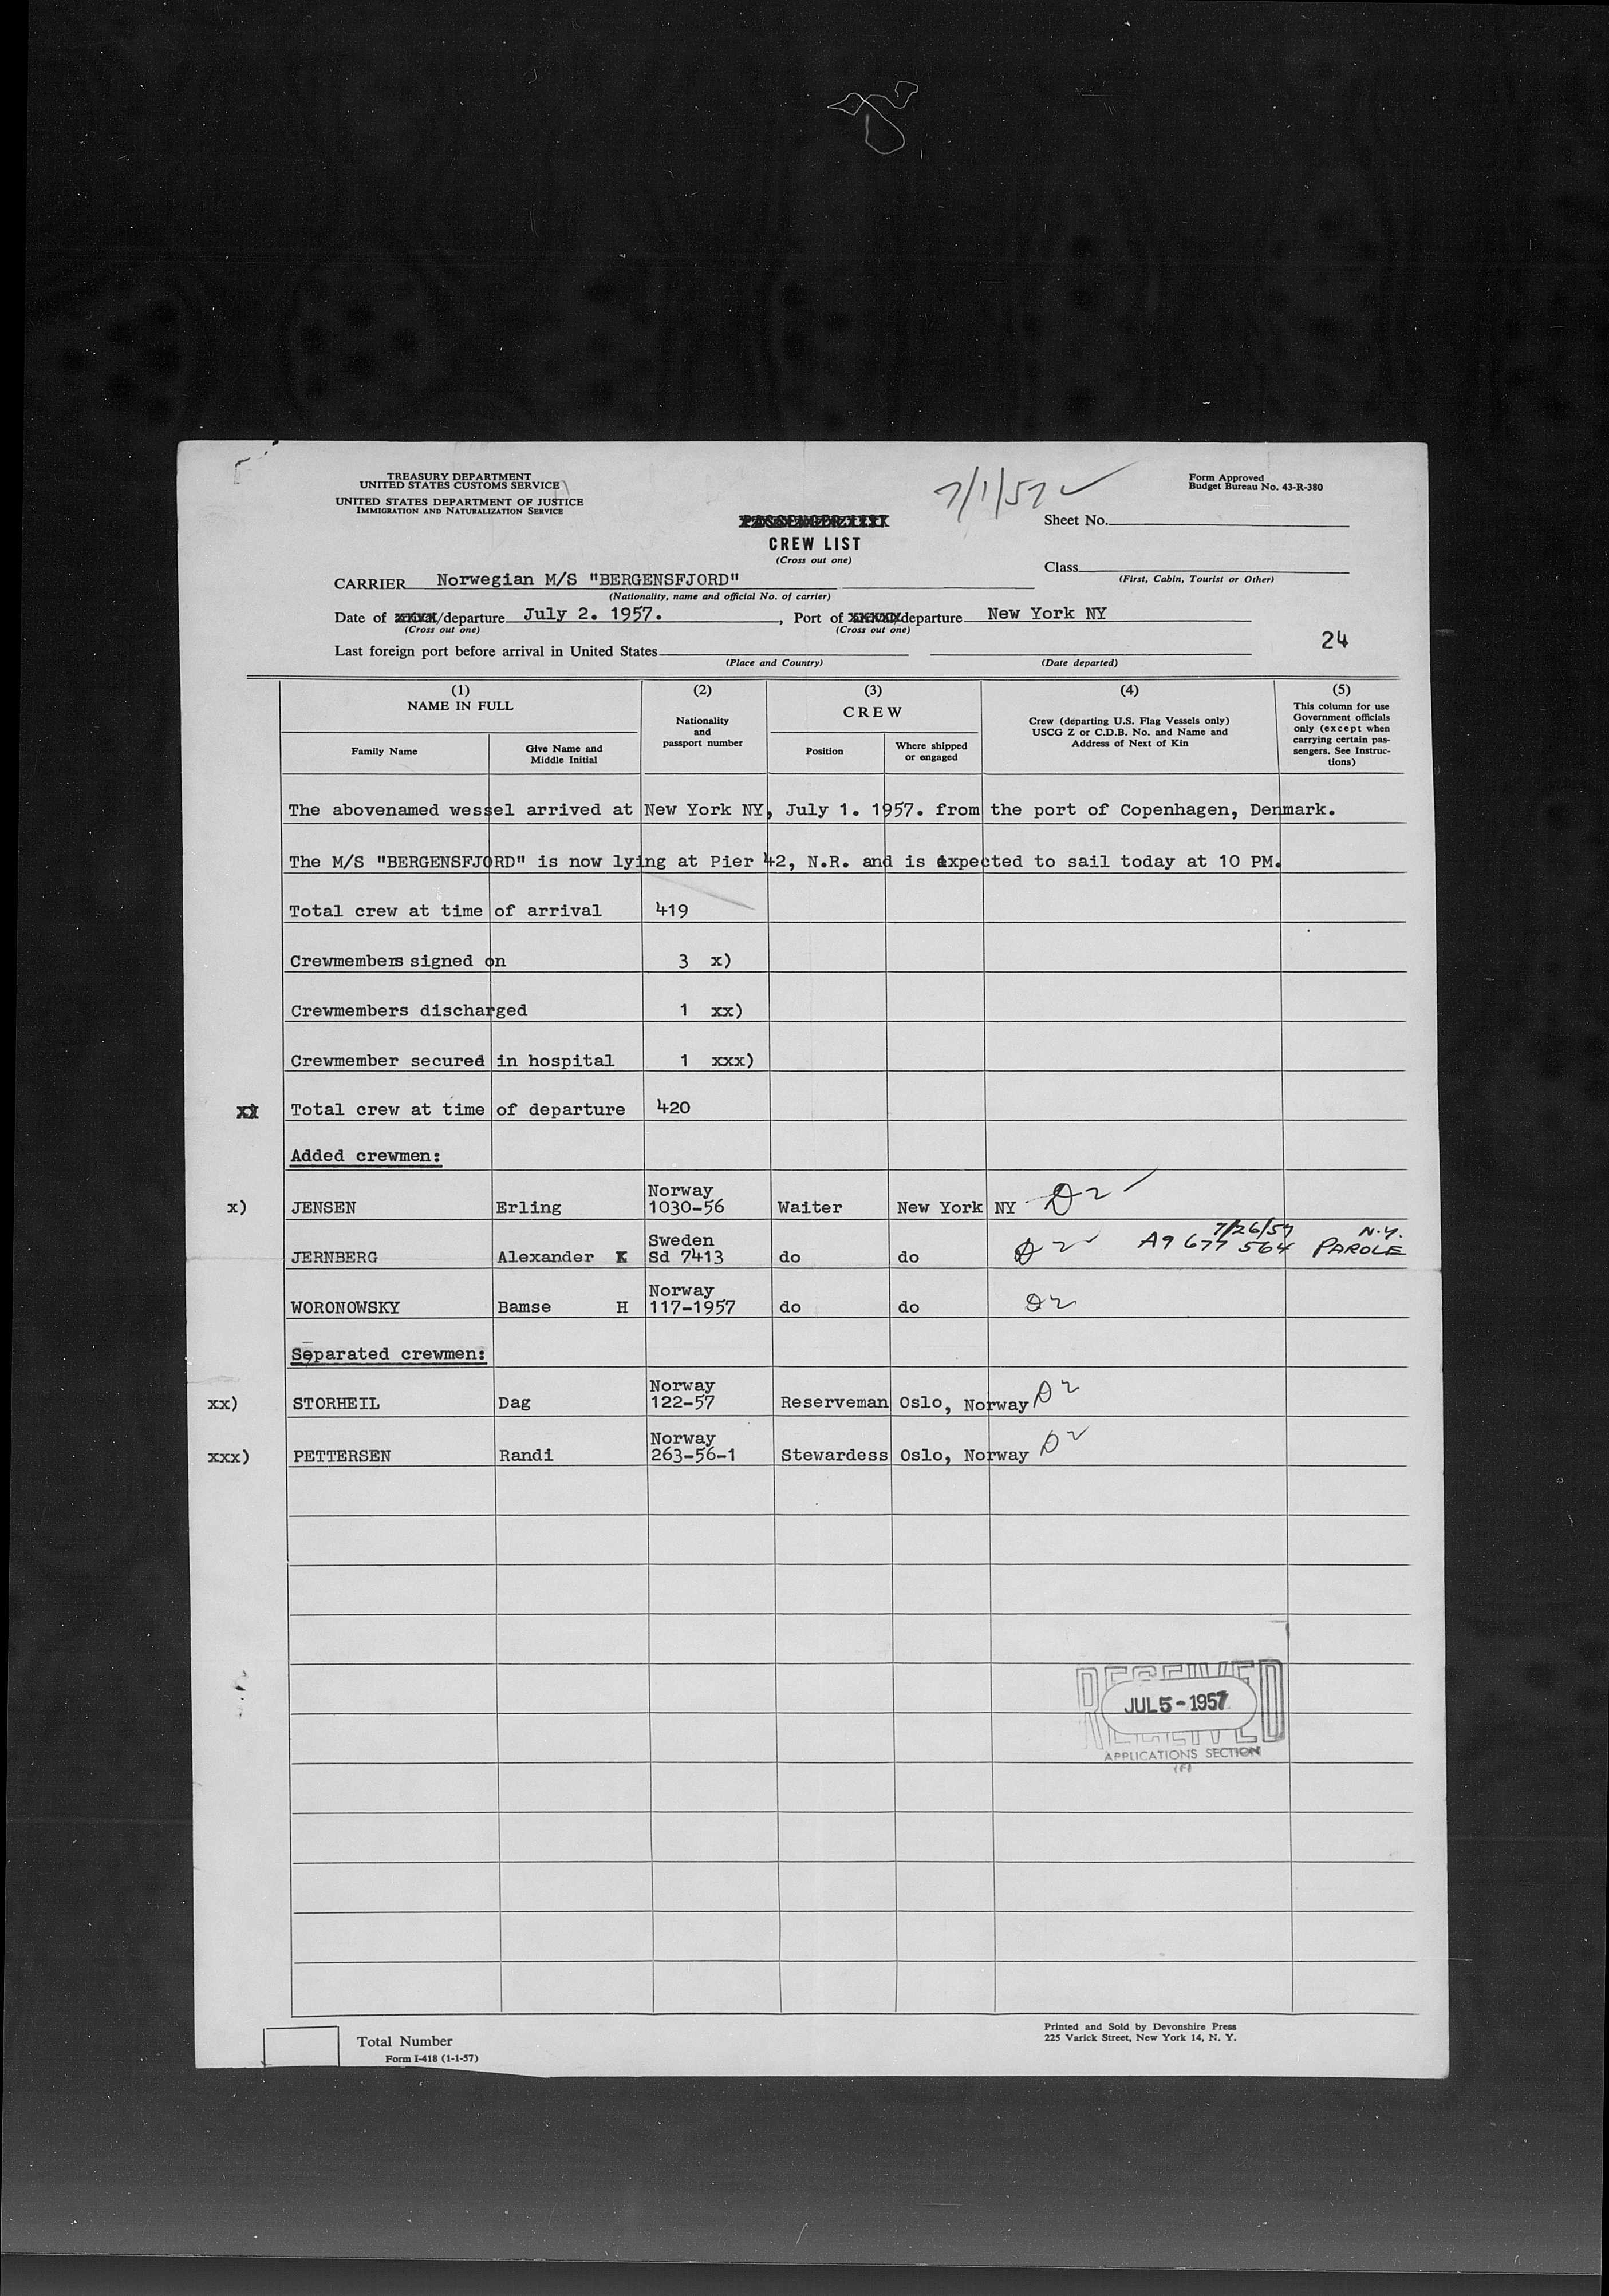 TREASURY DEPARTMENT
UNITED STATES CUSTOMS SERVICE
UNITED STATES DEPARTMENT OF JUSTICE
IMMIGRATION AND NATURALIZATION SERVICE
7/1/57
Form Approved
Budget Bureau No. 43-R-380
PASSENGER LIST
CREW LIST
(Cross out one)
Sheet No.
Class
(First, Cabin, Tourist or Other)
CARRIER Norwegian M/S "BERGENSFJORD"
(Nationality, name and official No. of carrier)
Date of /departure July 2. 1957. , Port of /departure New York NY
(Cross out one) (Cross out one)
24
Last foreign port before arrival in United States
(Place and Country) (Date departed)
(1) (2) (3) (4) (5)
NAME IN FULL Nationality and passport number CREW Crew (departing U.S. Flag Vessels only) USCG Z or C.D.B. No. and Name and Address of Next of Kin This column for use Government officials only (except when carrying certain passengers. See Instructions)
Family Name Give Name and Middle Initial Position Where shipped or engaged
The abovenamed wessel arrived at New York NY, July 1. 1957. from the port of Copenhagen, Denmark.
The M/S "BERGENSFJORD" is now lying at Pier 42, N.R. and is expected to sail today at 10 PM.
Total crew at time of arrival 419
Crewmembers signed on 3 x)
Crewmembers discharged 1 xx)
Crewmember secured in hospital 1 xxx)
Total crew at time of departure 420
Added crewmen:
x) JENSEN Erling Norway 1030-56 Waiter New York NY D2
JERNBERG Alexander K Sweden Sd 7413 do do D2 A9 677 564 7/26/57 N.Y. PAROLE
WORONOWSKY Bamse H Norway 117-1957 do do D2
Separated crewmen:
xx) STORHEIL Dag Norway 122-57 Reserveman Oslo, Norway D2
xxx) PETTERSEN Randi Norway 263-56-1 Stewardess Oslo, Norway D2
RECEIVED
JUL 5 - 1957
APPLICATIONS SECTION
Total Number
Form I-418 (1-1-57)
Printed and Sold by Devonshire Press
225 Varick Street, New York 14, N. Y.